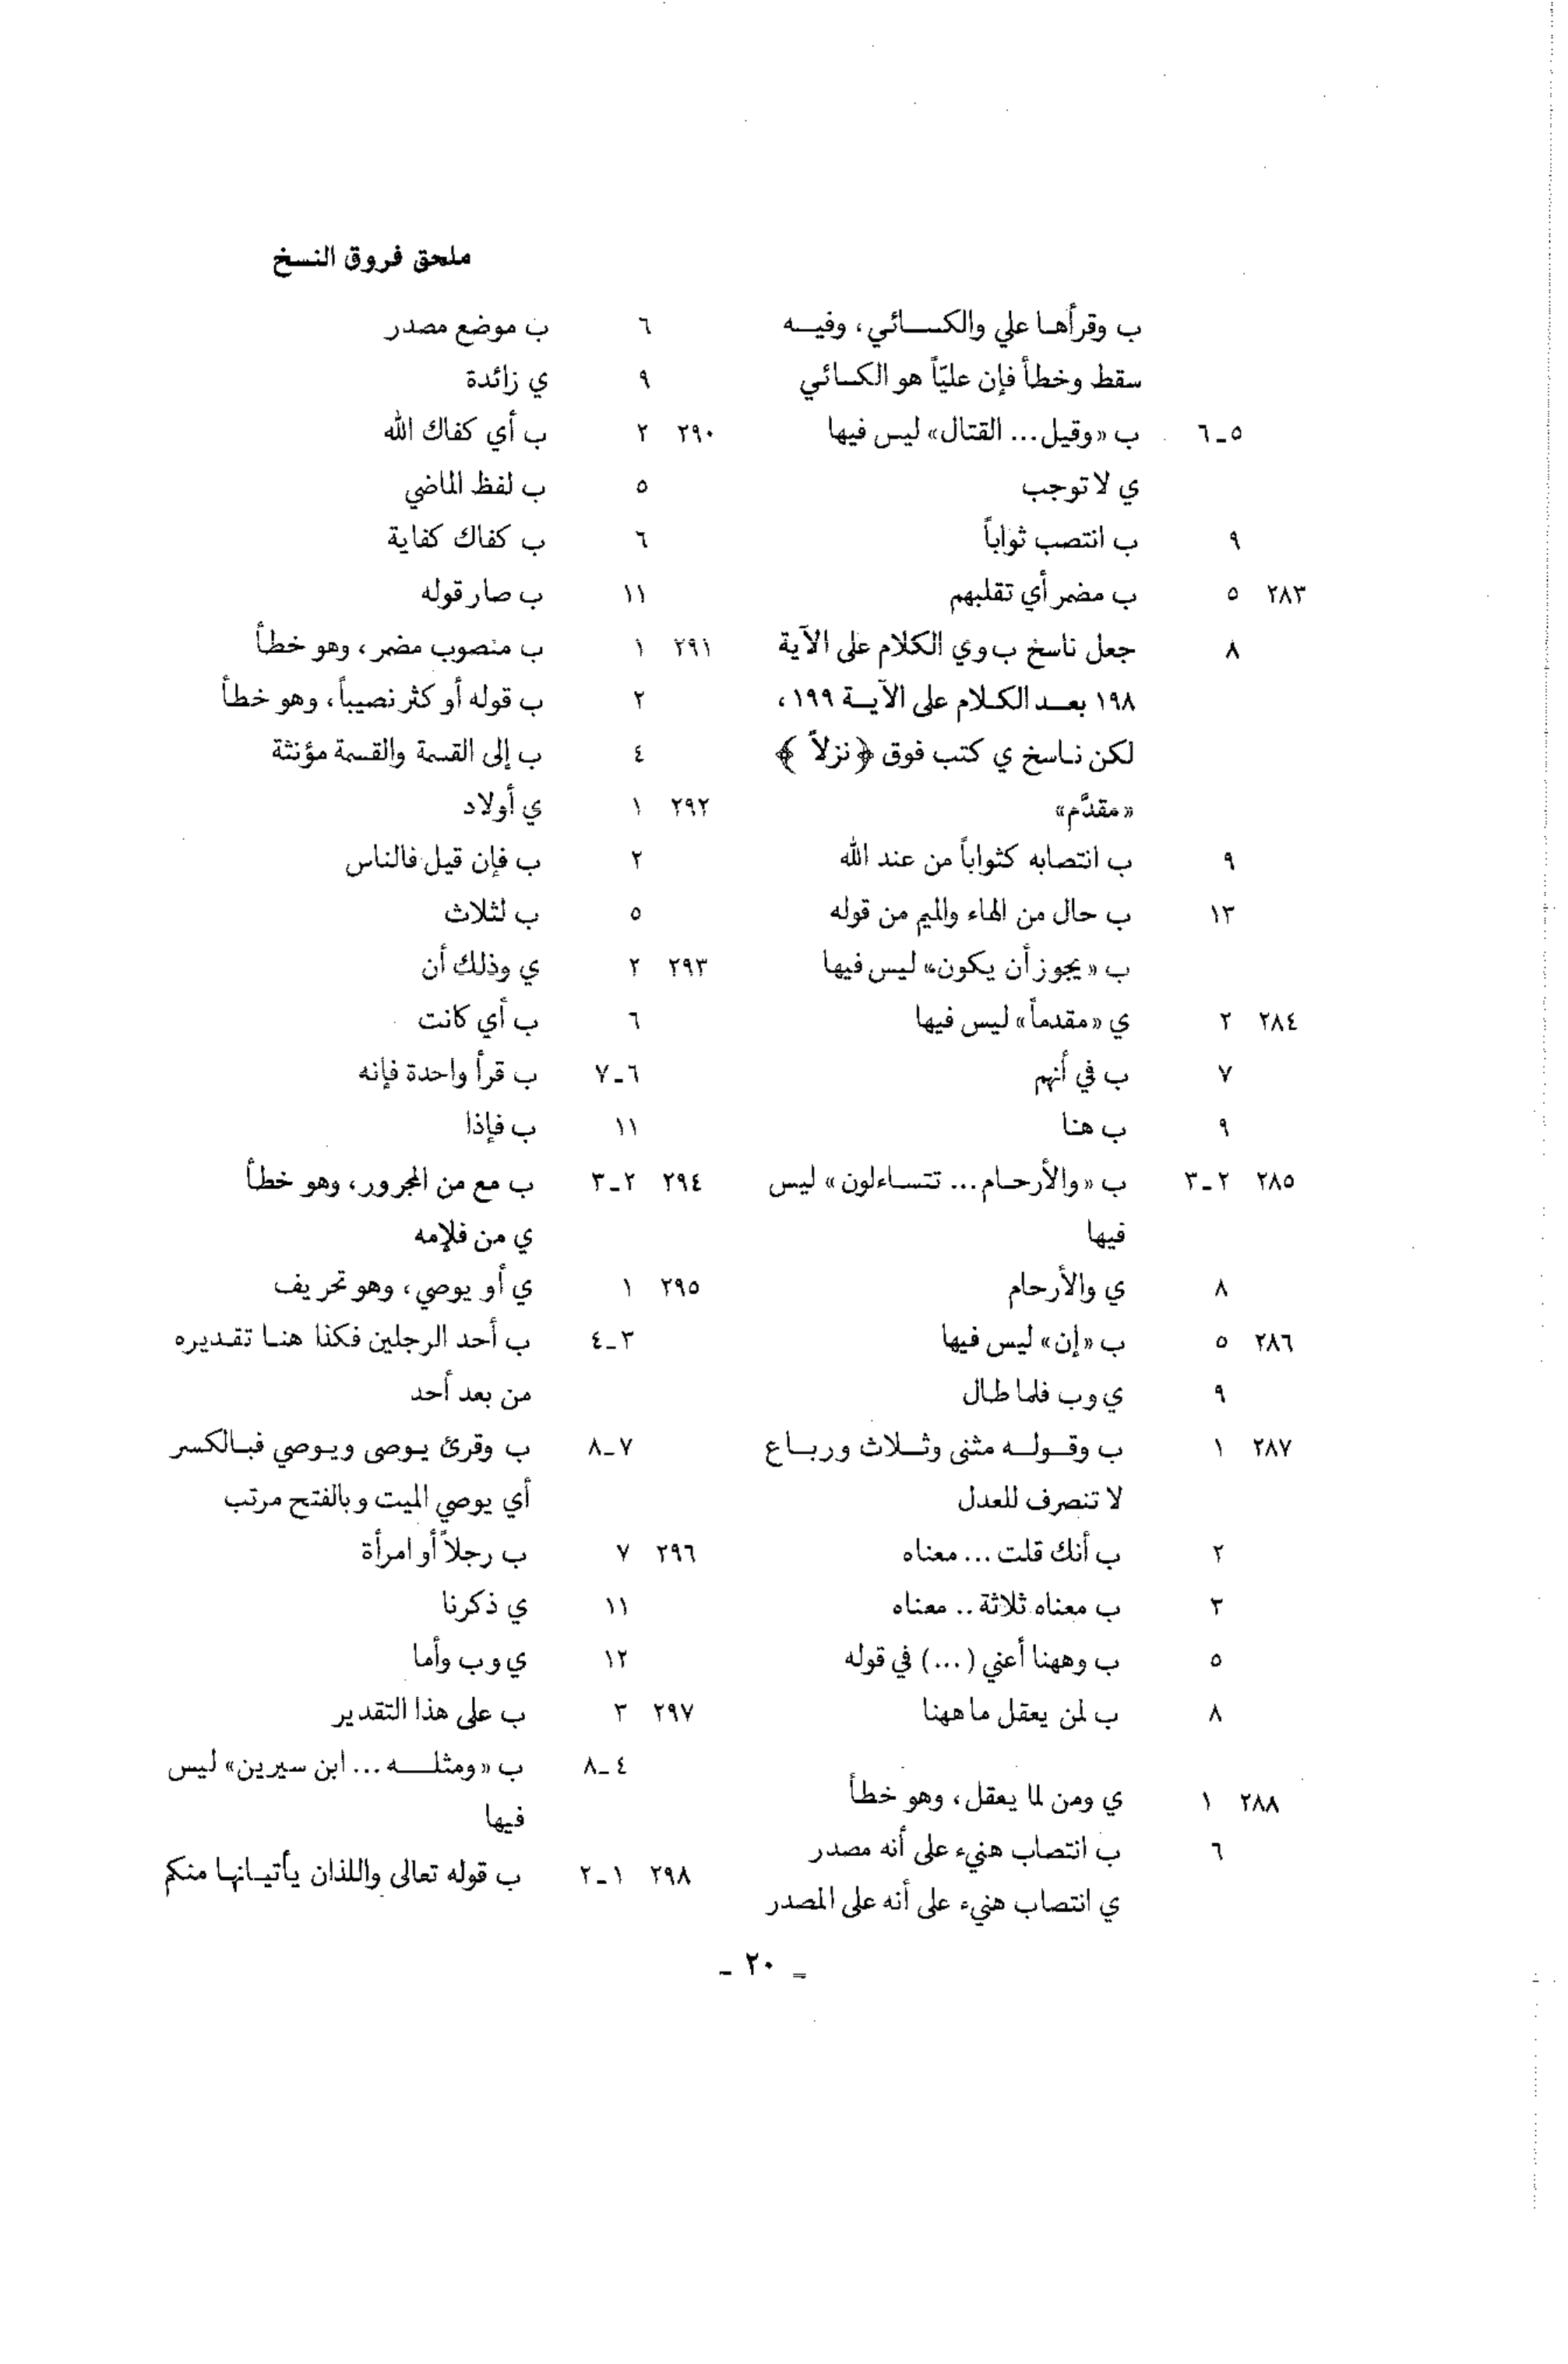 ملحق فروق النسخ
ب وقرأها علي والكسائي، وفيه
سقط وخطأ فإن عليّاً هو الكسائي
٥ـ٦ ب «وقيل... القتال» ليس فيها
ي لا توجب
٩ ب انتصب ثواباً
٢٨٣ ٥ ب مضمر أي تقلبهم
٨ جعل ناسخ ب وي الكلام على الآية
١٩٨ بعد الكلام على الآية ١٩٩،
لكن ناسخ ي كتب فوق ﴿نزلاً﴾
«مقدَّم»
٩ ب انتصابه كثواباً من عند الله
١٣ ب حال من الهاء والميم من قوله
ب «يجوز أن يكون» ليس فيها
٢٨٤ ٢ ي «مقدماً» ليس فيها
٧ ب في أنهم
٩ ب هنا
٢٨٥ ٢ـ٣ ب «والأرحام... تتساءلون» ليس
فيها
٨ ي والأرحام
٢٨٦ ٥ ب «إن» ليس فيها
٩ ي وب فلما طال
٢٨٧ ١ ب وقوله مثنى وثلاث ورباع
لا تنصرف للعدل
٢ ب أنك قلت... معناه
٣ ب معناه ثلاثة.. معناه
٥ ب وههنا أعني (...) في قوله
٨ ب لمن يعقل ما ههنا
٢٨٨ ١ ي ومن لما يعقل، وهو خطأ
٦ ب انتصاب هنيء على أنه مصدر
ي انتصاب هنيء على أنه على المصدر
٦ ب موضع مصدر
٩ ي زائدة
٢٩٠ ٢ ب أي كفاك الله
٥ ب لفظ الماضي
٦ ب كفاك كفاية
١١ ب صار قوله
٢٩١ ١ ب منصوب مضمر، وهو خطأ
٢ ب قوله أو كثر نصيباً، وهو خطأ
٤ ب إلى القسمة والقسمة مؤنثة
٢٩٢ ١ ي أولاد
٢ ب فإن قيل فالناس
٥ ب لثلاث
٢٩٣ ٢ ي وذلك أن
٦ ب أي كانت
٦ـ٧ ب قرأ واحدة فإنه
١١ ب فإذا
٢٩٤ ٢ـ٣ ب مع من المجرور، وهو خطأ
ي من فلإمه
٢٩٥ ١ ي أو يوصي، وهو تحريف
٣ـ٤ ب أحد الرجلين فكذا هنا تقديره
من بعد أحد
٧ـ٨ ب وقرئ يوصى ويوصي فبالكسر
أي يوصي الميت وبالفتح مرتب
٢٩٦ ٧ ب رجلاً أو امرأة
١١ ي ذكرنا
١٢ ي وب وأما
٢٩٧ ٣ ب على هذا التقدير
٤ـ٨ ب «ومثله... ابن سيرين» ليس
فيها
٢٩٨ ١ـ٢ ب قوله تعالى واللذان يأتيانها منكم
ـ ٢٠ ـ